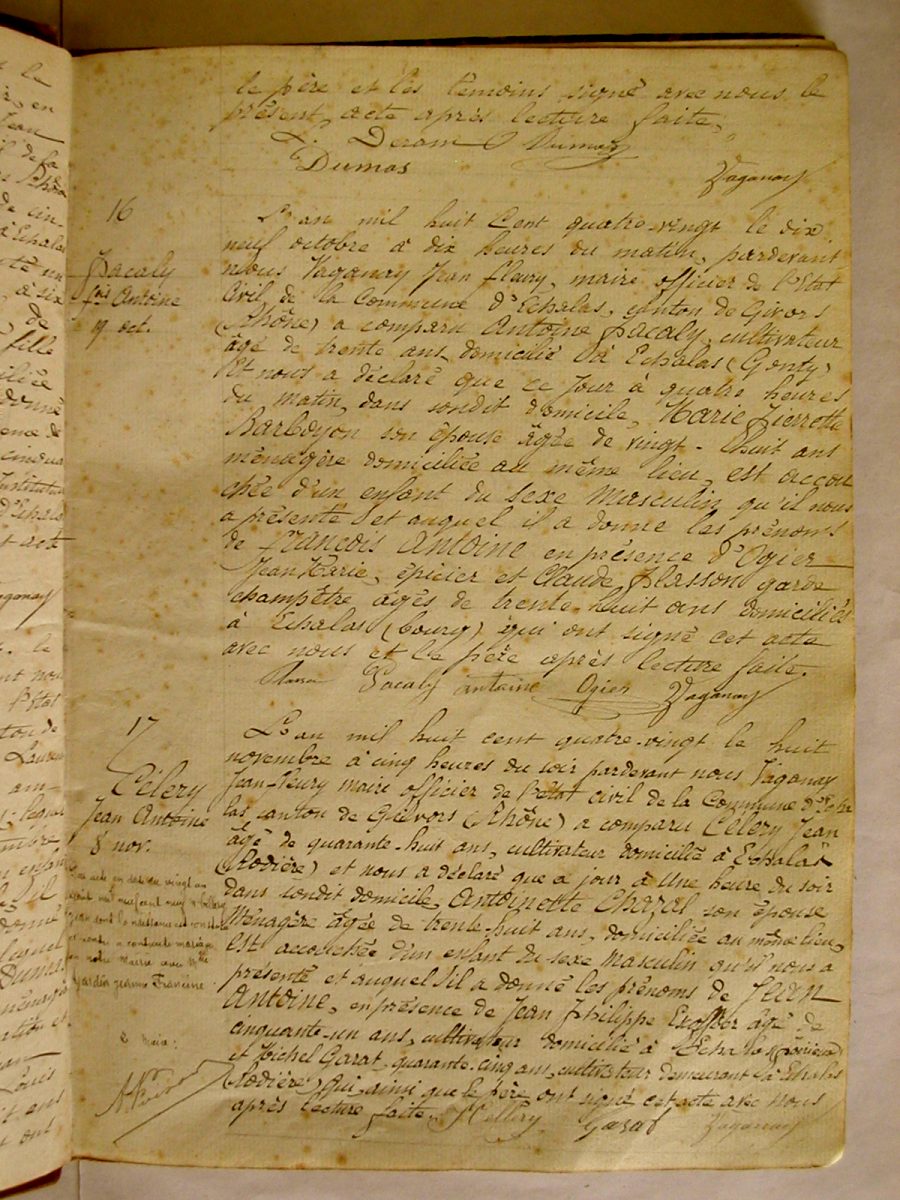 le père et les témoins signé avec nous le
présent acte après lecture faite.
Deram Dumas
Dumas
Vaganay
16
Pacaly
fois Antoine
19 oct.
L'an mil huit Cent quatre-vingt le dix
neuf octobre à dix heures du matin, pardevant
nous Vaganay Jean fleury, maire officier de l'Etat
Civil de la Commune d'Echalas, canton de Givors
(Rhône) a comparu Antoine Pacaly, cultivateur
âgé de trente ans domicilié à Echalas (Gonty)
Et nous a déclaré que ce jour à quatre heures
du matin, dans sondit domicile, Marie Pierrette
Barboyon son épouse âgée de vingt-huit ans
ménagère domiciliée au même lieu, est accou
chée d'un enfant du sexe Masculin qu'il nous
a présenté et auquel il a donné les prénoms
de françois Antoine en présence d'Ogier
Jean Marie, épicier et Claude Plasson garde
champêtre âgés de trente huit ans domiciliés
à Echalas (bourg) qui ont signé cet acte
avec nous et le père après lecture faite.
Plasson Pacaly antoine Ogier Vaganay
17
Célery
Jean Antoine
8 nov.
L'an mil huit cent quatre-vingt le huit
novembre à cinq heures du soir pardevant nous Vaganay
Jean-fleury maire officier de l'état civil de la Commune d'Echa
las, canton de Givors (Rhône) a comparu Célery Jean
âgé de quarante-huit ans, cultivateur domicilié à Echalas
(Rodière) et nous a déclaré que ce jour à Une heure du soir
dans sondit domicile, Antoinette Chazal son épouse
Ménagère âgée de trente-huit ans, domiciliée au même lieu,
est accouchée d'un enfant du sexe Masculin qu'il nous a
présenté et auquel il a donné les prénoms de Jean
Antoine, en présence de Jean Philippe âgé de
cinquante-un ans, cultivateur domicilié à Echalas
et Michel Garat, quarante-cinq ans, cultivateur demeurant à Echalas
(Rodière) qui, ainsi que le père, ont signé cet acte avec nous
après lecture faite. Cellery Garat Vaganay
acte en date du vingt un
août mil neuf cent Célery
Jean dont la naissance est constatée
a contracté mariage
en notre Mairie avec Melle
Gardon jeanne Francine
Le Maire: